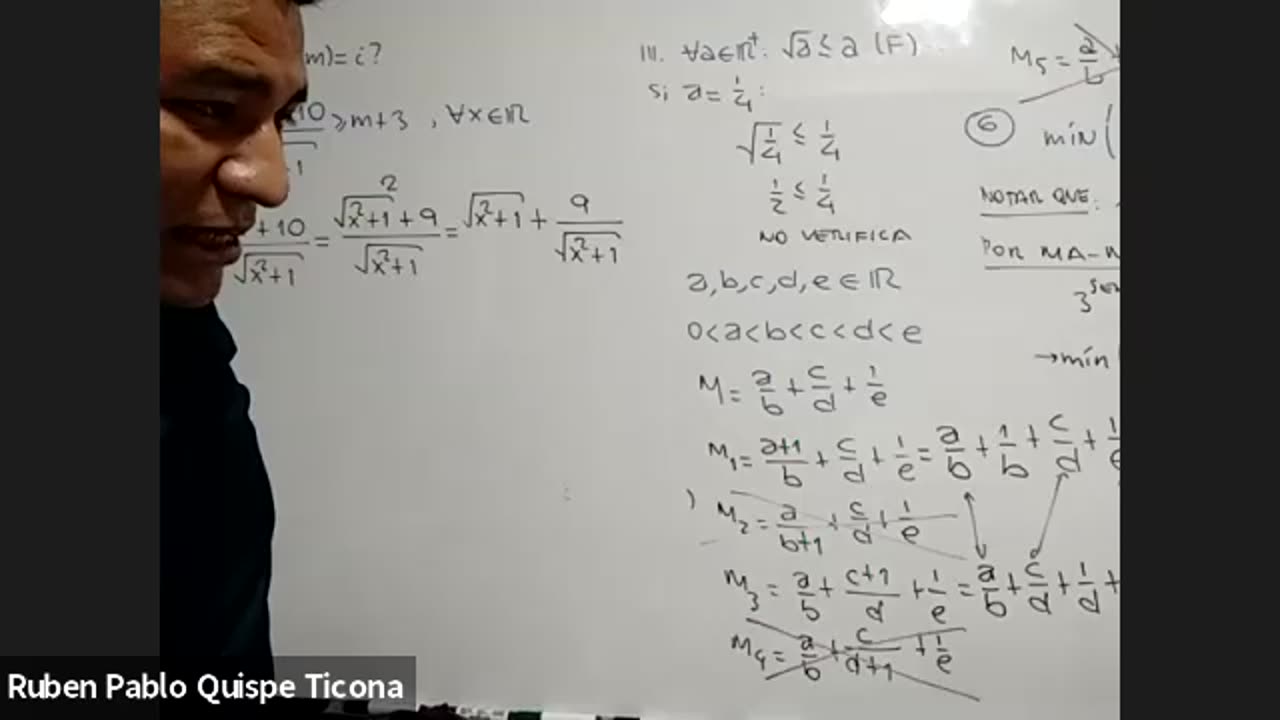 m)=¿?
10 ≥ m+3 , ∀x∈ℝ
+10/√(x²+1) = (√(x²+1)² + 9)/√(x²+1) = √(x²+1) + 9/√(x²+1)
III. ∀a∈ℝ⁺: √a ≤ a (F)
Si a = 1/4:
√(1/4) ≤ 1/4
1/2 ≤ 1/4
NO VERIFICA
a,b,c,d,e ∈ ℝ
0<a<b<c<d<e
M = a/b + c/d + 1/e
M₁ = (a+1)/b + c/d + 1/e = a/b + 1/b + c/d + 1/e
M₂ = a/(b+1) + c/d + 1/e
M₃ = a/b + (c+1)/d + 1/e = a/b + c/d + 1/d +
M₄ = a/b + c/(d+1) + 1/e
M₅ = a/b
6 mín(
NOTAR QUE:
POR MA-
3
→mín
Ruben Pablo Quispe Ticona